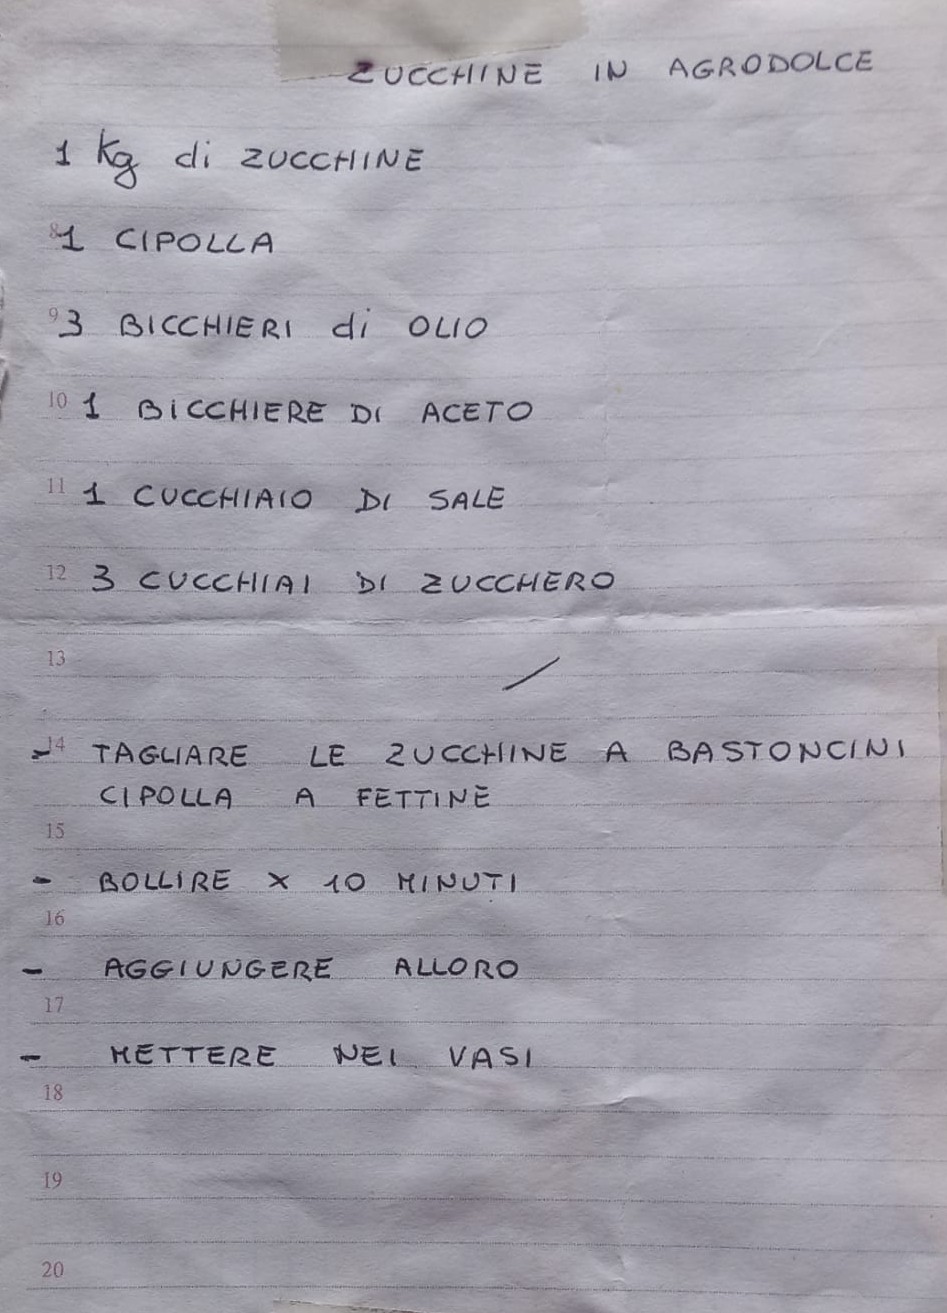 ZUCCHINE IN AGRODOLCE
1 Kg di ZUCCHINE
8 1 CIPOLLA
9 3 BICCHIERI di OLIO
10 1 BICCHIERE DI ACETO
11 1 CUCCHIAIO DI SALE
12 3 CUCCHIAI DI ZUCCHERO
13
14 - TAGLIARE LE ZUCCHINE A BASTONCINI
CIPOLLA A FETTINE
15
- BOLLIRE X 10 MINUTI
16
- AGGIUNGERE ALLORO
17
- METTERE NEI VASI
18
19
20